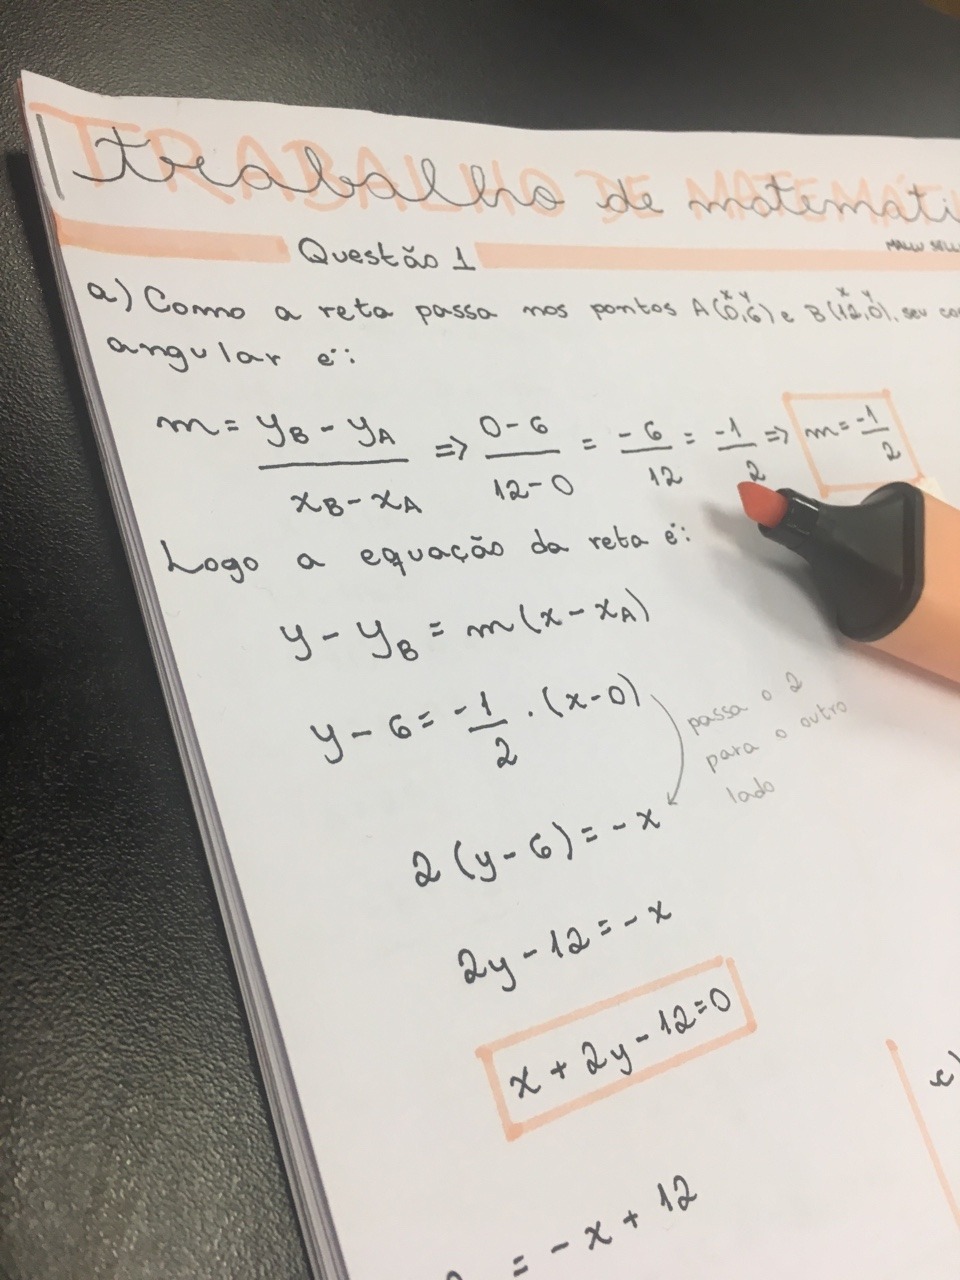 TRABALHO DE MATEMÁ
trabalho de matemáti
Questão 1
MALU
a) Como a reta passa nos pontos A(0,6) e B(12,0), seu
x y x y
angular é:
m = yB - yA / xB - xA => 0-6 / 12-0 = -6/12 = -1/2 => m = -1/2
Logo a equação da reta é:
y - yB = m(x - xA)
y - 6 = -1/2 . (x-0)
passa o 2
para o outro
lado
2(y-6) = -x
2y - 12 = -x
x + 2y - 12 = 0
c)
= -x + 12